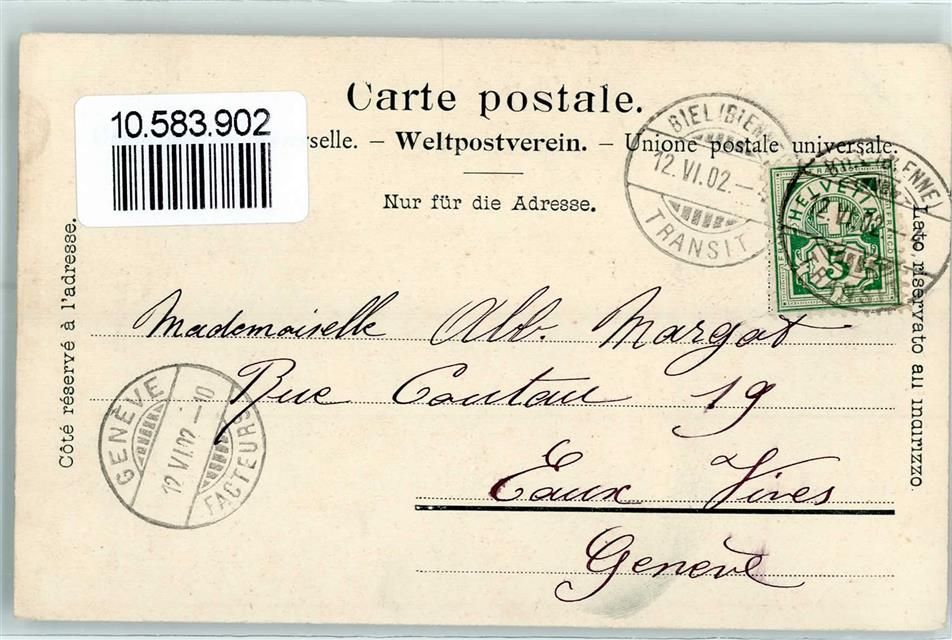 Carte postale.
10.583.902
rselle. – Weltpostverein. – Unione postale universale.
Nur für die Adresse.
Côté réservé à l'adresse.
Lato riservato all indirizzo.
BIEL (BIENNE
12.VI.02.–
TRANSIT
BIENNE
12 VI 02
HELVETIA
5
Mademoiselle Alb. Margot
Rue Coutau 19
Eaux Vives
Genève
GENÈVE
12 VI.02–10
FACTEUR